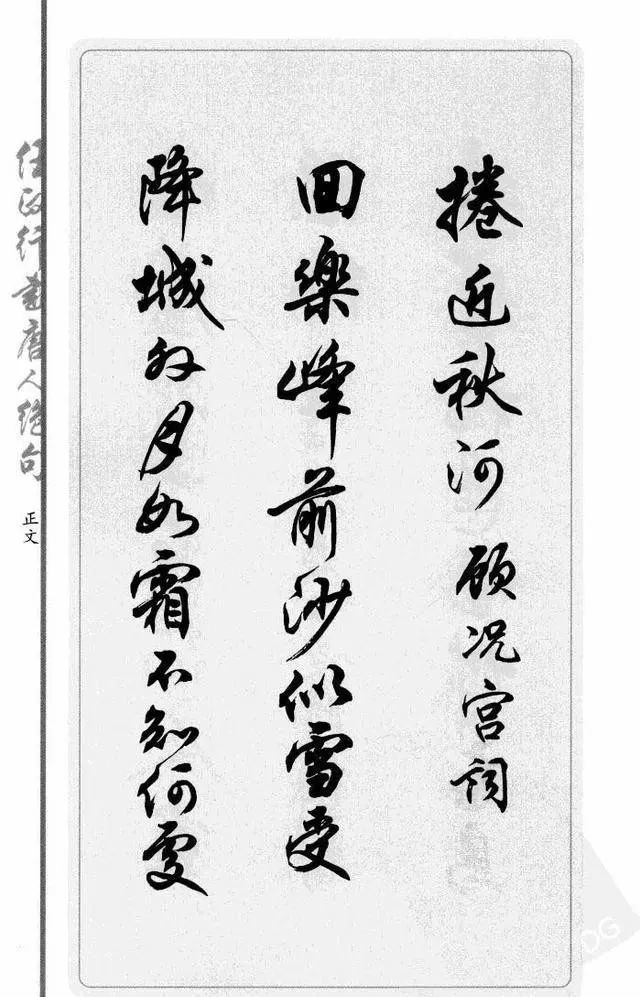 捲近秋河 顾况宫词
回樂峰前沙似雪受
降城外月如霜不知何處
任政行書唐人绝句
正文
DG